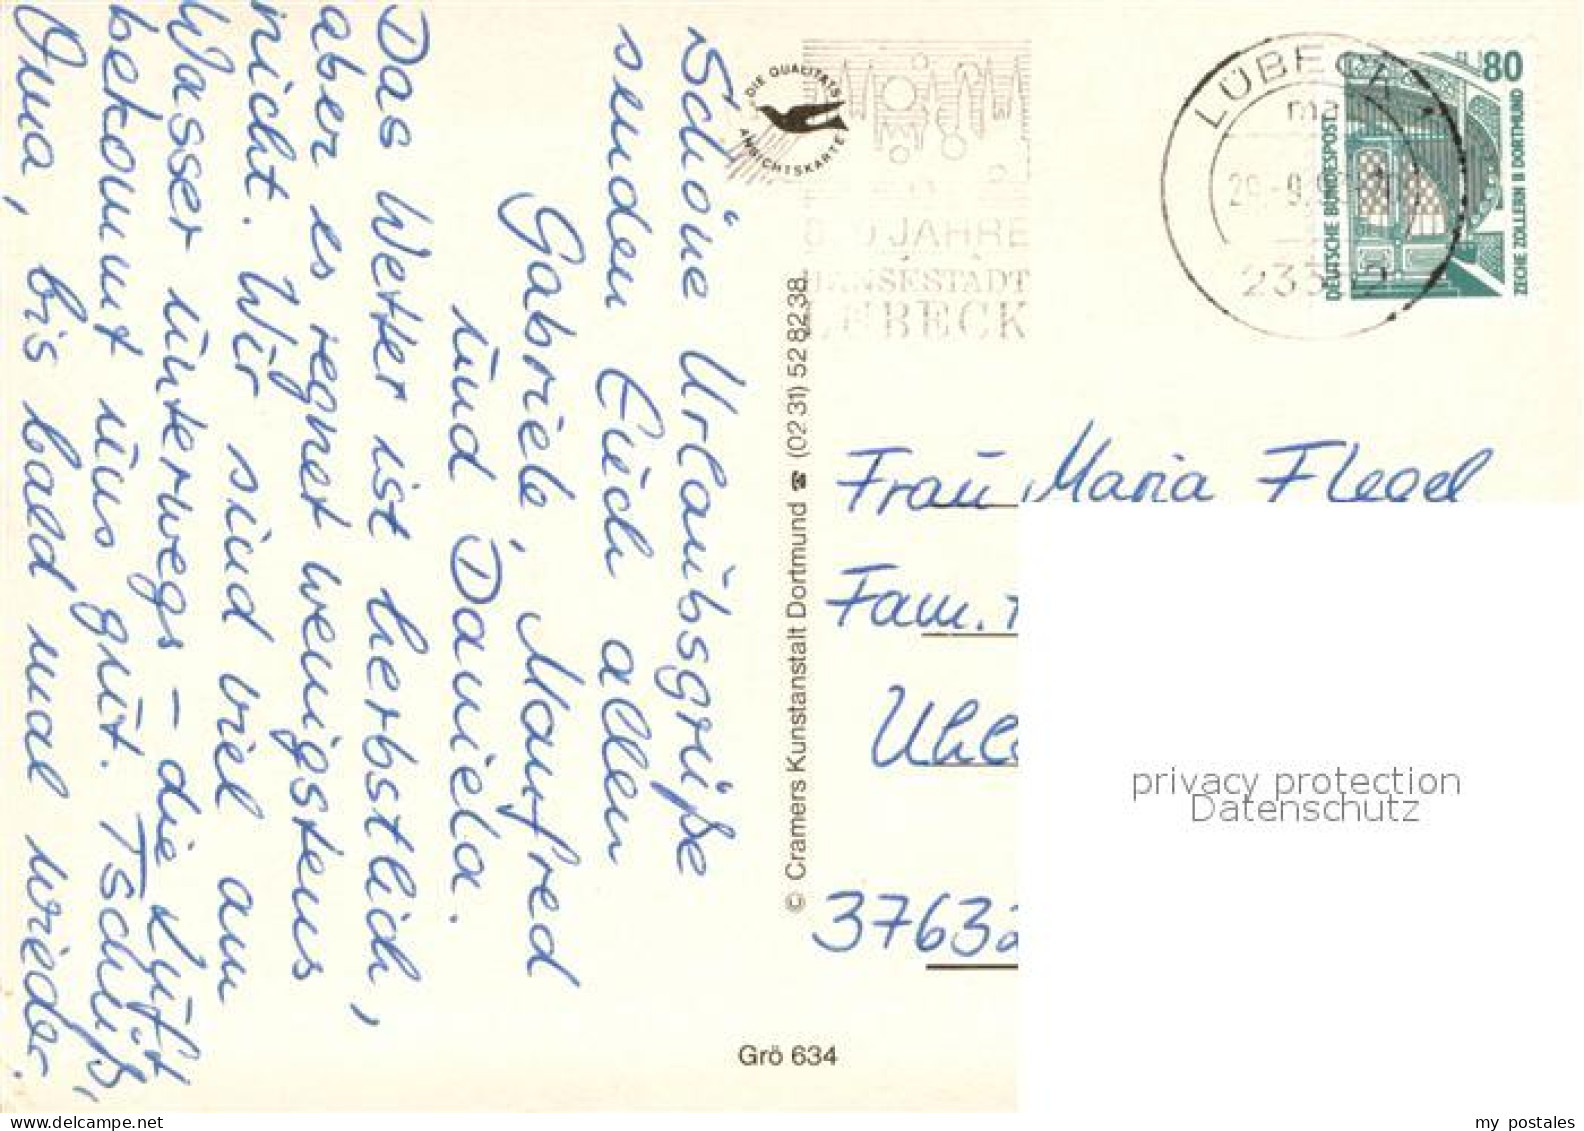 Schöne Urlaubsgrüße
senden Euch allen
Gabriele, Manfred
und Daniela.
Das Wetter ist herbstlich,
aber es regnet wenigstens
nicht. Wir sind viel am
Wasser unterwegs – die Luft
bekommt uns gut. Tschüß,
Oma, bis bald mal wieder.
DIE QUALITÄTS
ANSICHTSKARTE
JAHRE
HANSESTADT
LÜBECK
LÜBECK
80
DEUTSCHE BUNDESPOST
ZECHE ZOLLERN II DORTMUND
© Cramers Kunstanstalt Dortmund ☎ (02 31) 52 82 38
Frau Maria Flegel
Fam.
37632
Grö 634
privacy protection
Datenschutz
my postales